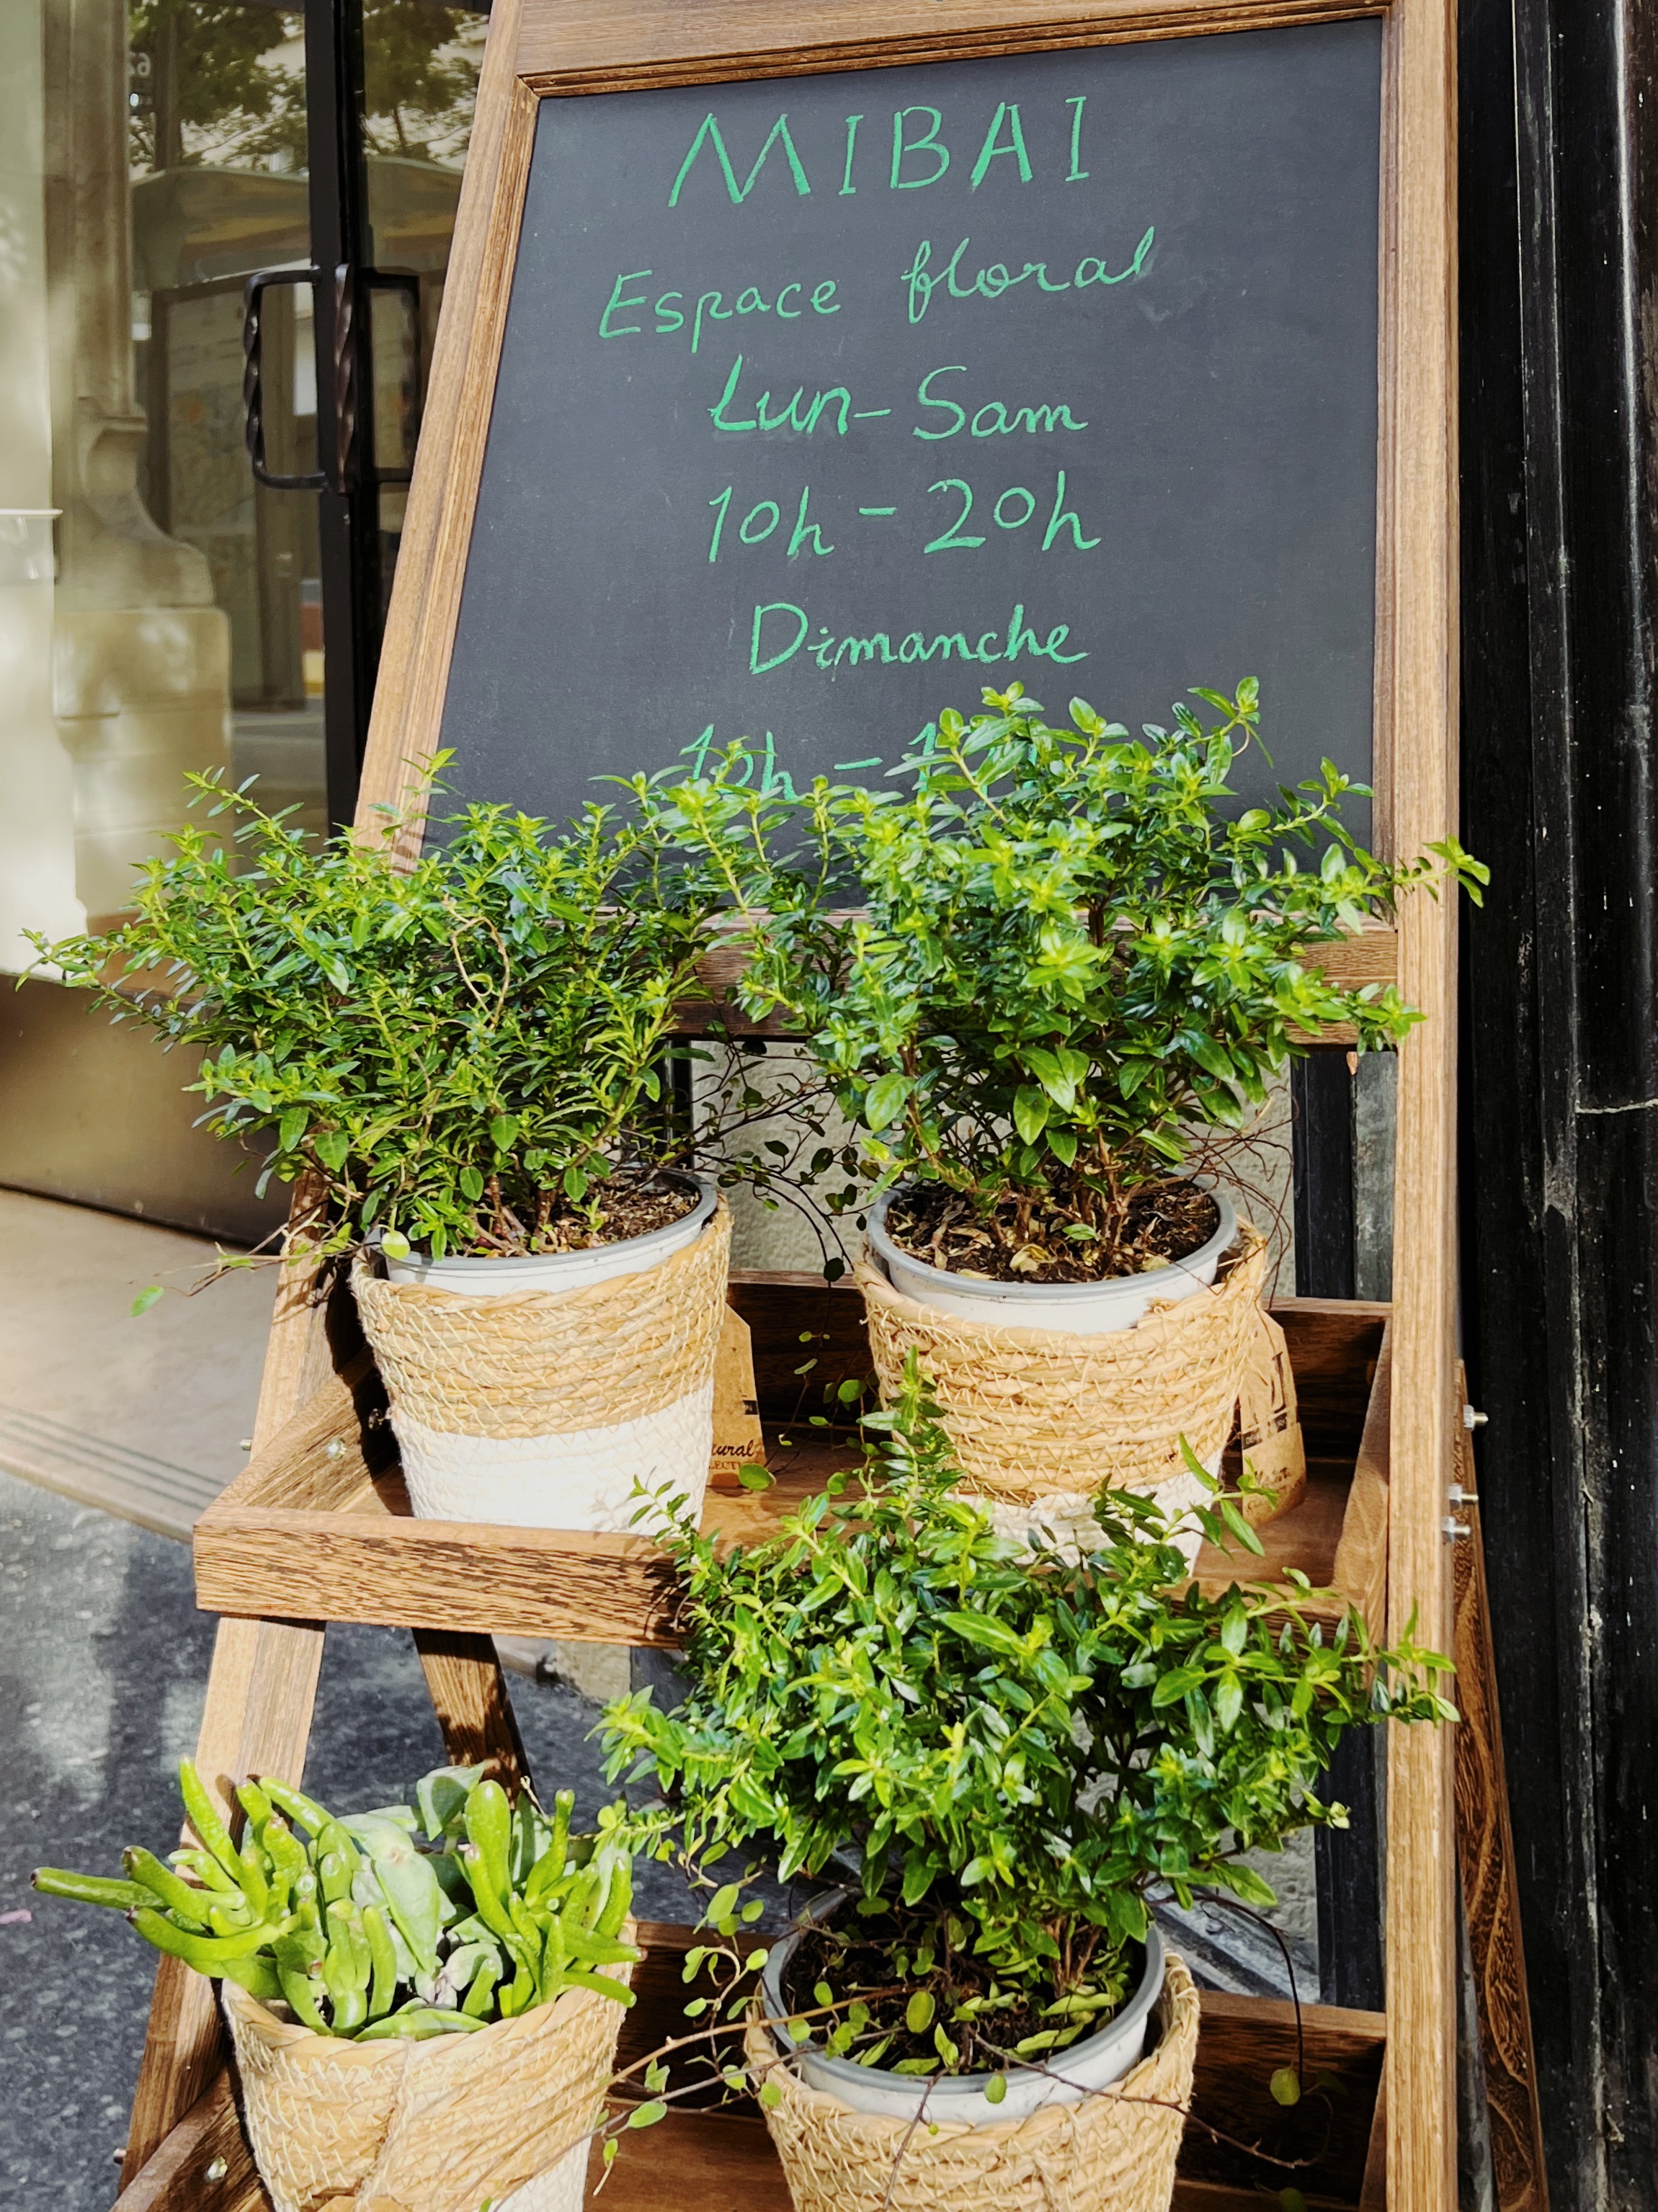 MIBAI
Espace floral
Lun-Sam
10h - 20h
Dimanche
10h -